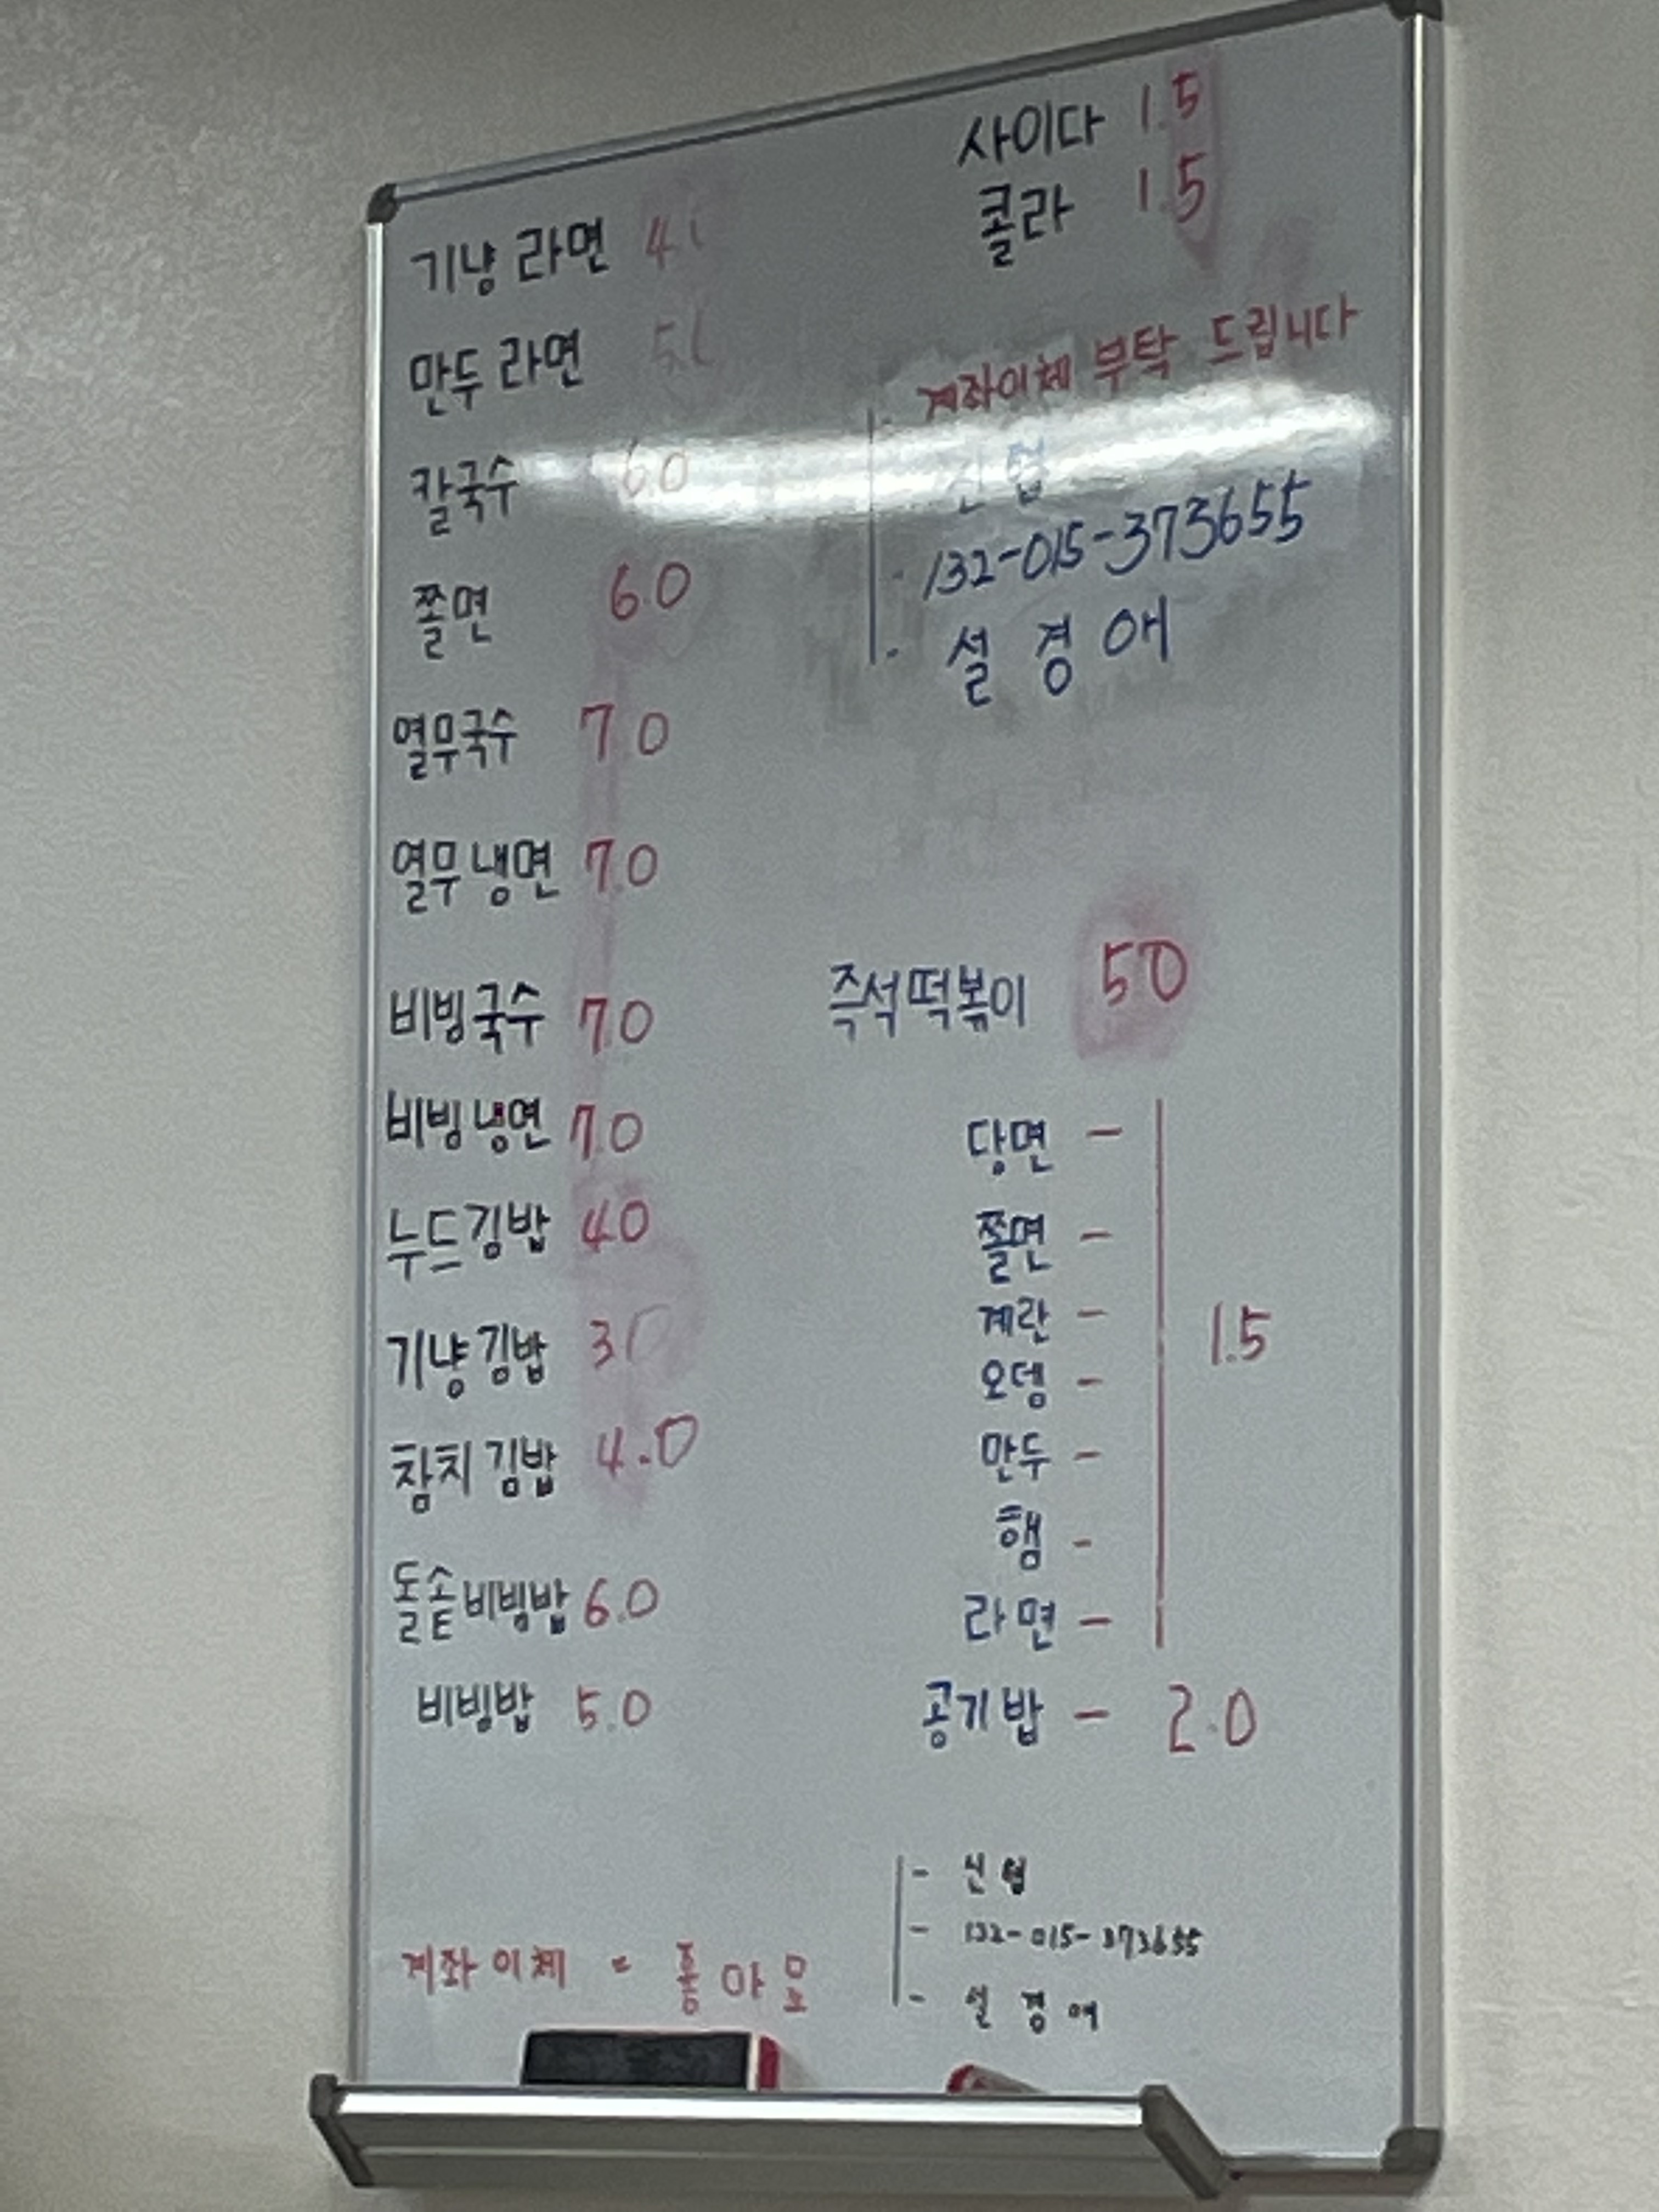 기냥 라면 4.
만두 라면
칼국수 6.0
쫄면 6.0
열무국수 7.0
열무 냉면 7.0
비빙국수 7.0
비빙냉면 7.0
누드김밥 4.0
기냥김밥 3.0
참치김밥 4.0
돌솥비빔밥 6.0
비빔밥 5.0
계좌이체 =
사이다 1.5
콜라 1.5
계좌이체 부탁 드립니다
신협
132-015-373655
설경애
즉석떡볶이 5.0
당면 -
쫄면 -
계란 -
오뎅 -
만두 -
햄 -
라면 -
1.5
공기밥 - 2.0
- 신협
- 132-015-373655
- 설경애